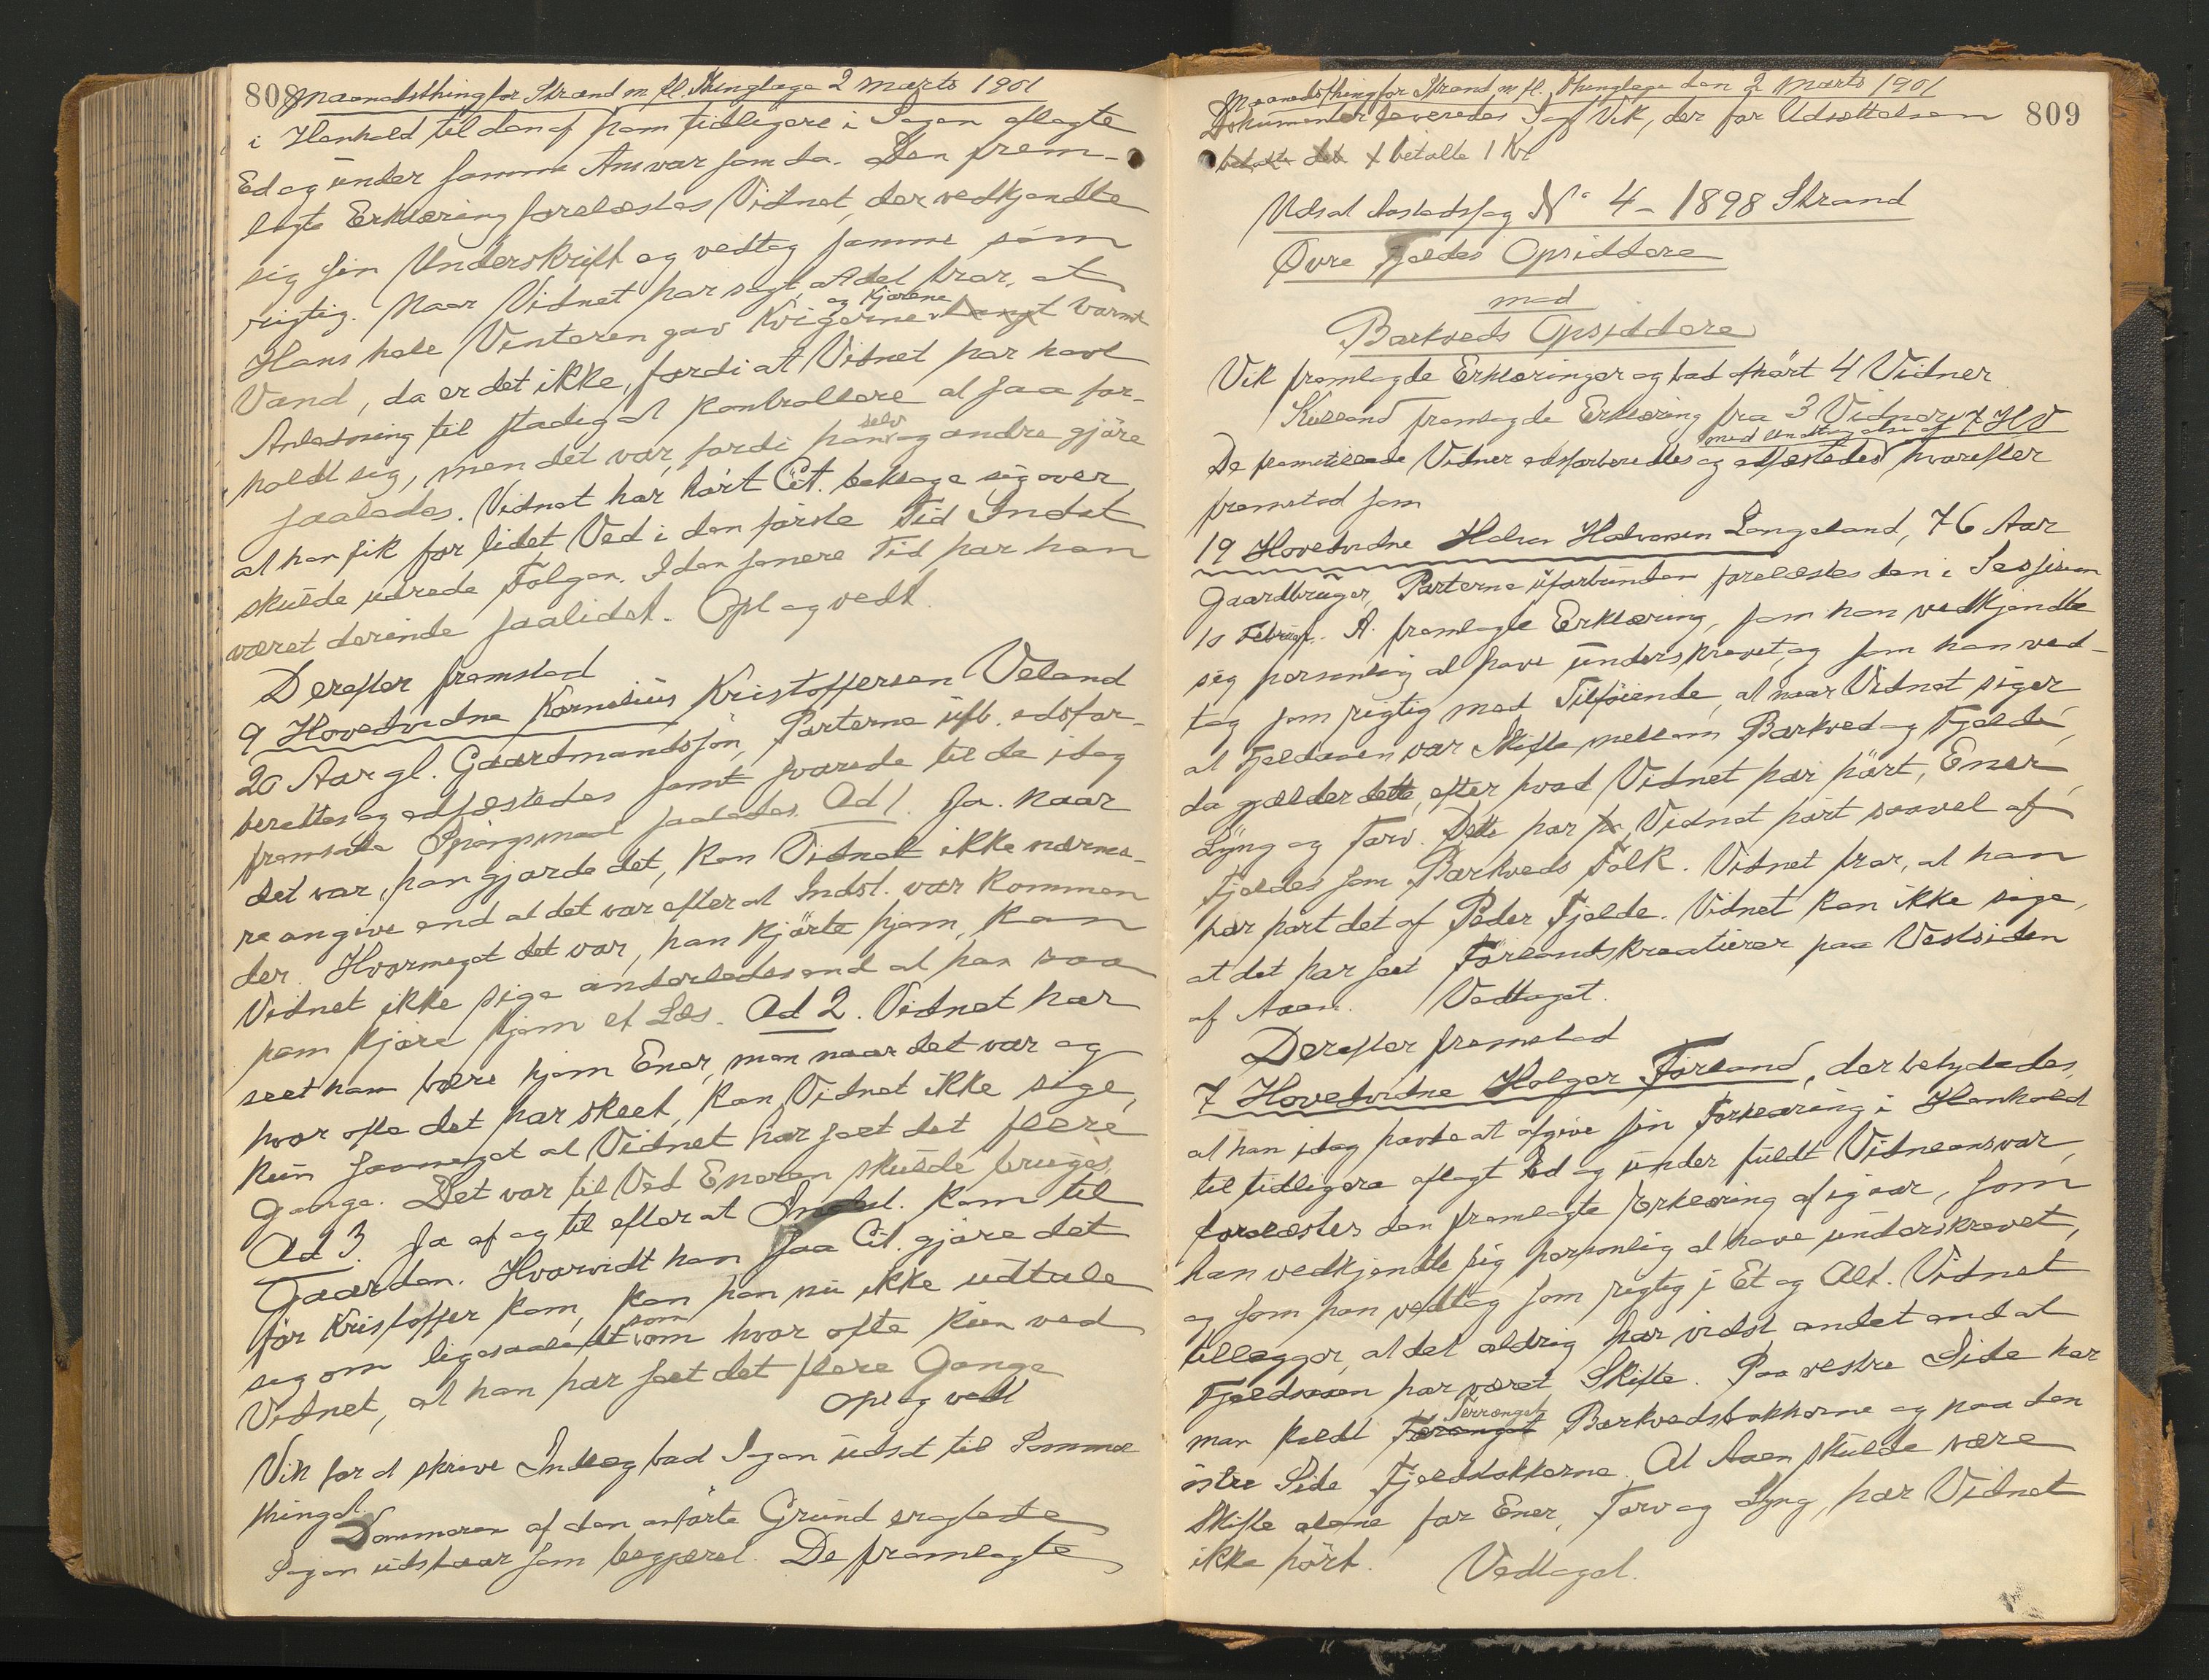 808
Maanedsthing for Strand m fl. Thinglage 2 Marts 1901
i Henhold til den af ham tidligere i Sagen aflagte
Ed og under samme Ansvar som da. Den frem-
lagte Erklæring forelæstes Vidnet, der vedkjendte
sig sin Underskrift og vedtog samme som
rigtig. Naar Vidnet har sagt, at det tror, at
Hans hele Vinteren gav Kvigerne og Kjørene langt varmt
Vand, da er det ikke, fordi at Vidnet har havt
Anledning til stadig at kontrollere at saa for-
holdt sig, men det var, fordi han selv og andre gjøre
saaledes. Vidnet har hørt Cit. beklage sig over
at han fik for lidet Ved i den første Tid Indst
skulde udrede Folgen. I den senere Tid har han
været derinde saalidet. Opl og vedt.
Derefter fremstod
9 Hovedvidne Kornelius Kristoffersen Veland
20 Aar gl. Gaardmandssøn, Parterne ufb. edsfor-
berettes og edfæstedes samt svarede til de idag
fremsatte Spörgsmaal saaledes. Ad 1. Ja. Naar
det var, han gjorde det, kan Vidnet ikke nærme-
re angive end at det var efterat Indst. var kommen
der. Hvormeget det var, han kjørte hjem, kan
Vidnet ikke sige anderledes end at han saa
ham kjøre hjem et Læs. Ad 2. Vidnet har
seet ham bære hjem Ener, men naar det var og
hvor ofte det har skeet, kan Vidnet ikke sige,
kun saameget at Vidnet har seet det flere
Gange. Det var til Ved Eneren skulde bruges.
Ad 3. Ja af og til efterat Indst. kom til
Gaarden. Hvorvidt han saa Cit. gjøre det
før Kristoffer kom, kan han nu ikke udtale
sig om ligesaalidt som om hvor ofte kun ved
Vidnet, at han har seet det flere Gange
Opl og vedt
Vik for at skrive Indlæg bad Sagen udsat til Sommer
thinget.
Dommeren af den anførte Grund eragtede
Sagen udstaar som begjæret. De fremlagte
Maanedsthing for Strand m fl. Thinglage den 2 Marts 1901
809
Dokumenter leveredes Sagf Vik, der for Udsættelsen
betalte det betalte 1 Kr
Udsat Aastedssag No 4 - 1898 Strand
Øvre Fjeldes Opsiddere
mod
Barkveds Opsiddere
Vik fremlagde Erklæringer og bad afhørt 4 Vidner
Kulland fremlagde Erklæring fra 3 Vidner
De fremstillede Vidner edsforberedtes og edfæstedes med Undtagelse af 7 HV hvorefter
fremstod som
19 Hovedvidne Halvor Halvorsen Langeland, 76 Aar
Gaardbruger, Parterne uforbunden forelæstes den i Sessionen
10 Februar f. A. fremlagte Erklæring, som han vedkjendte
sig personlig at have underskrevet, og som han ved-
tog som rigtig med Tilføiende, at naar Vidnet siger
at Fjeldaaen var Skifte mellem Barkved og Fjelde,
da gjælder dette, efter hvad Vidnet har hørt, Ener,
Lyng og Torv. Dette har ha Vidnet hørt saavel af
Fjeldes som Barkveds Folk. Vidnet tror, at han
har hørt det af Peder Fjelde. Vidnet kan ikke sige,
at det har seet Førlandskreaturer paa Vestsiden
af Aaen. Vedtaget.
Derefter fremstod
7 Hovedvidne Holger Førland, der betydedes,
at han idag havde at afgive sin Forklaring i Henhold
til tidligere aflagt Ed og under fuldt Vidneansvar,
forelæstes den fremlagte Erklæring af igaar, som
han vedkjendte sig personlig at have underskrevet,
og som han vedtog som rigtig i Et og Alt. Vidnet
tillægger, at det aldrig har vidst andet end at
Fjeldaaen har været Skifte. Paa vestre Side har
man kaldt Terænget Terrænget Barkvedsbakkerne og paa den
østre Side Fjeldebakkerne. At Aaen skulde være
Skifte alene for Ener, Torv og Lyng, har Vidnet
ikke hørt. Vedtaget.